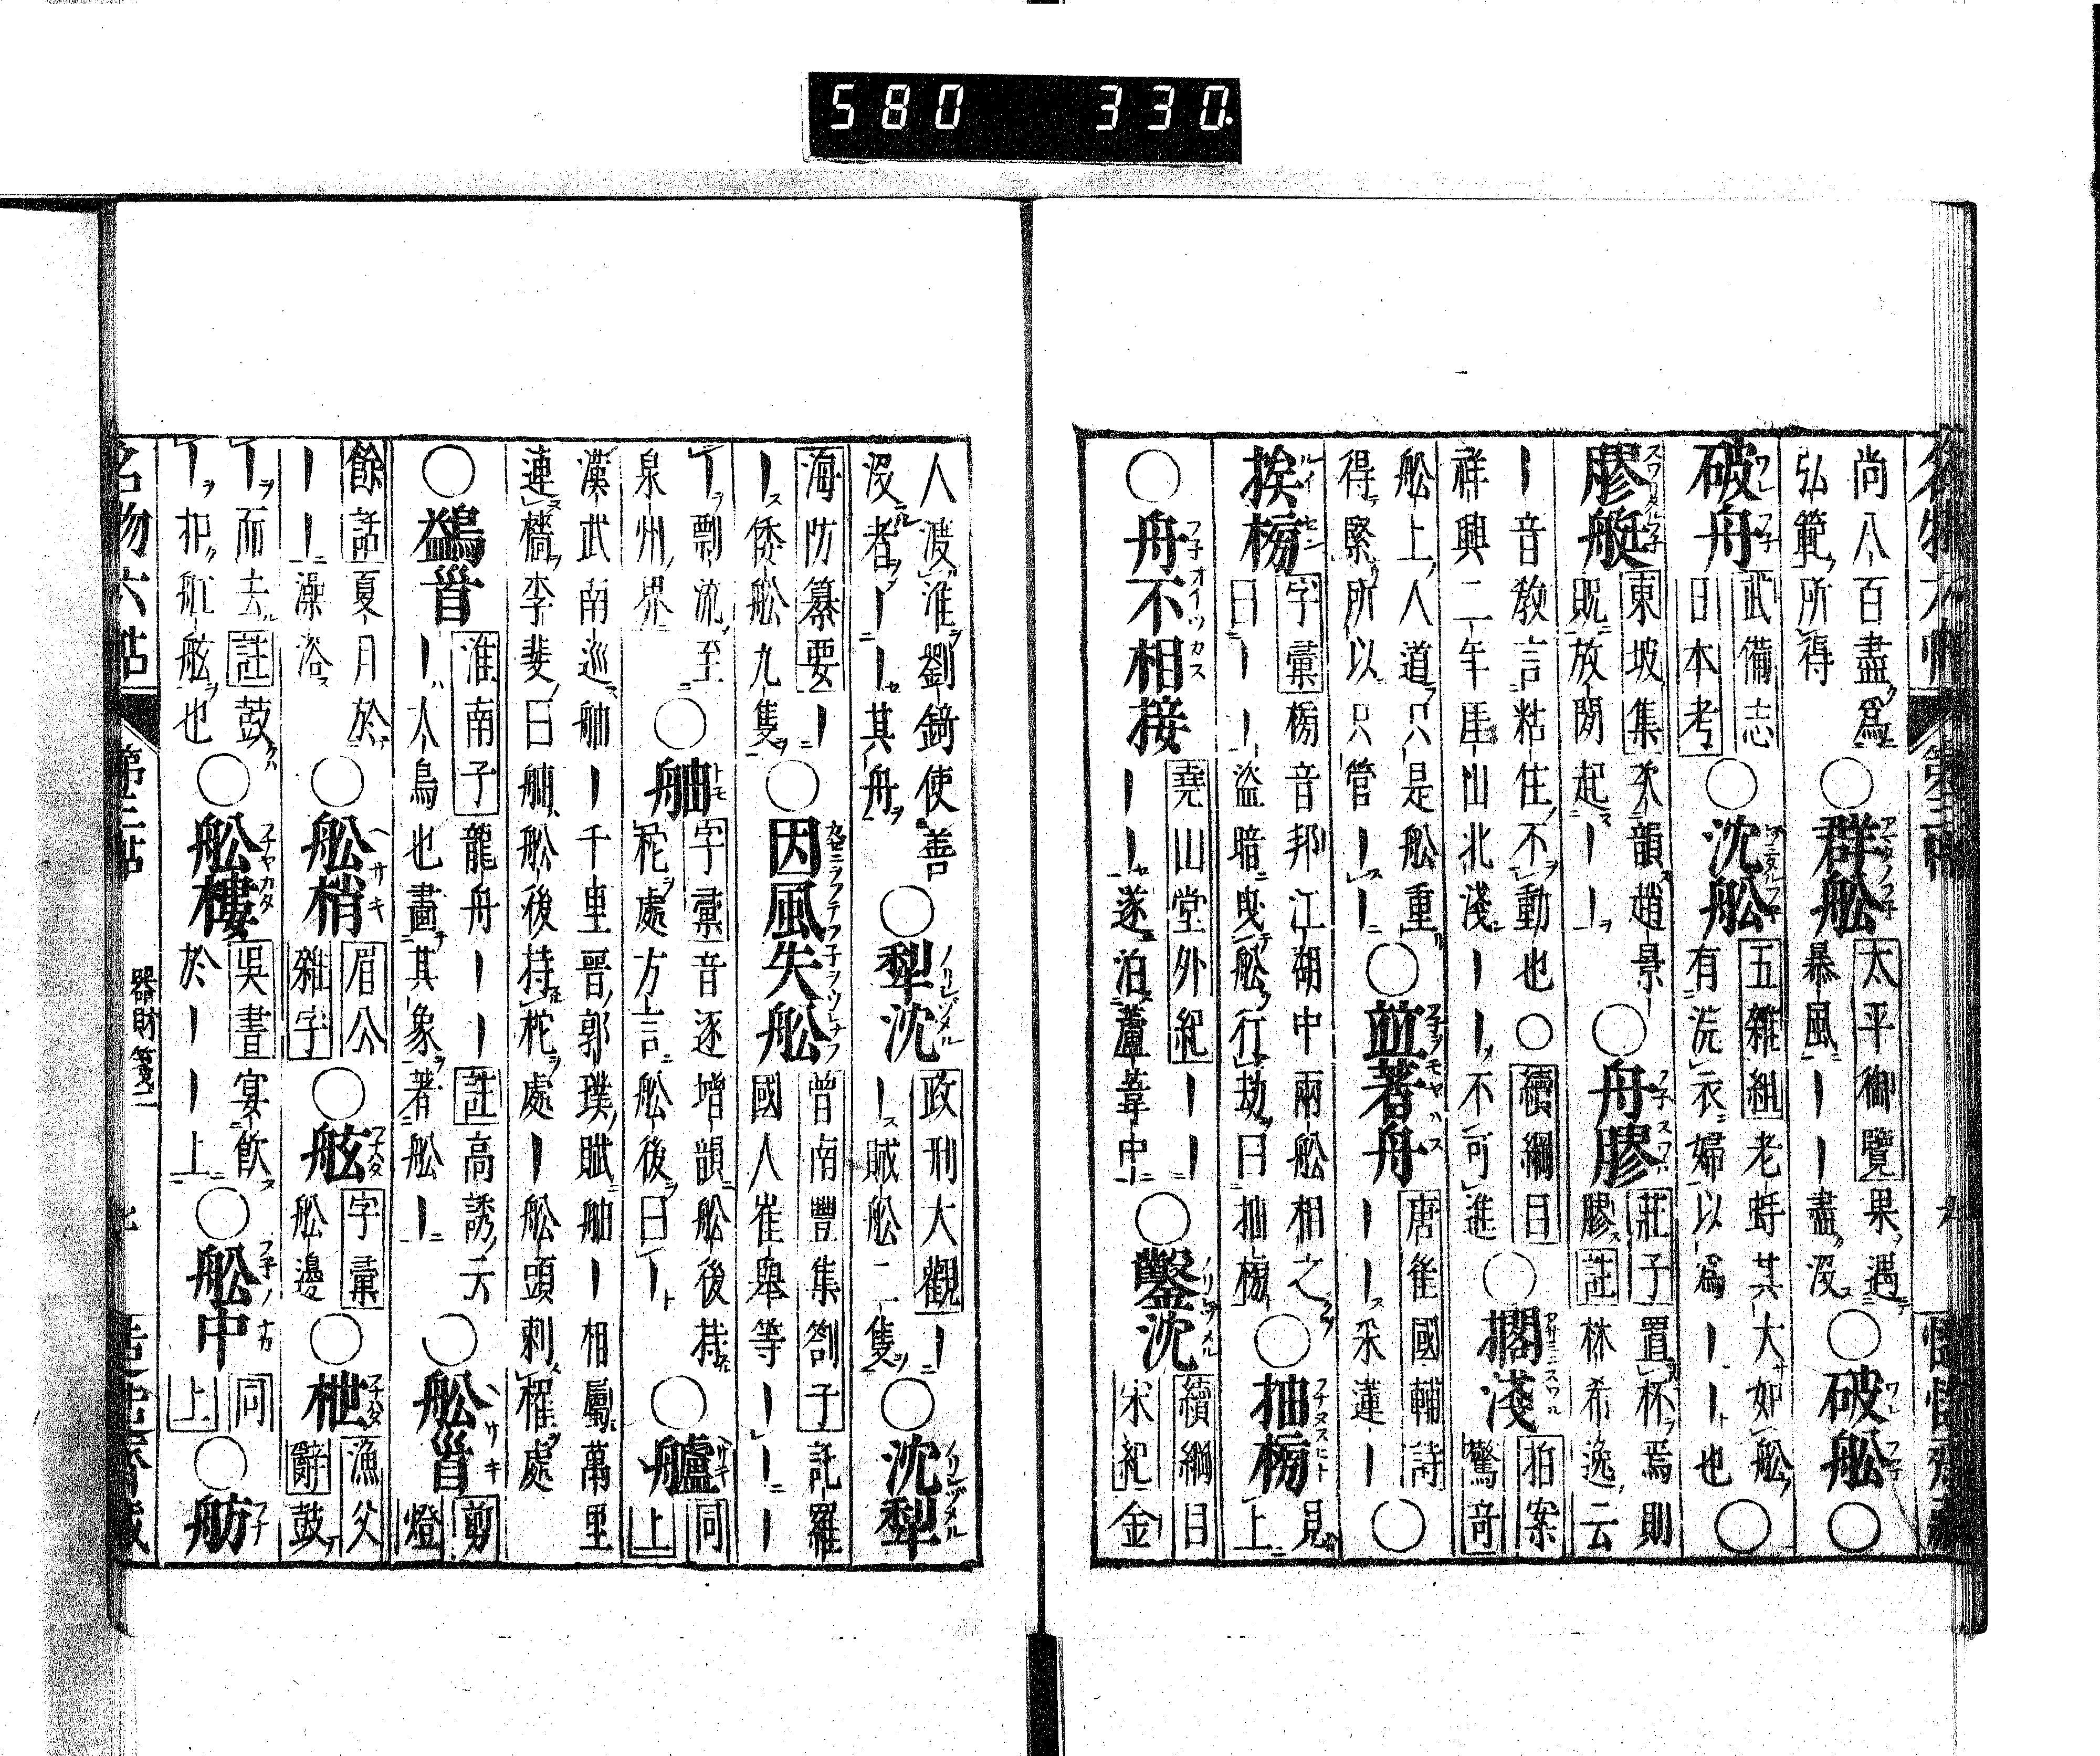 580 330
尚八百盡爲
弘範所得
○群舩 太平御覽果遇
暴風丨丨盡沒
○破舩○
破舟 武備志
日本考
○沈舩 五雜組老蚌其大如舩
有浣衣婦以爲丨丨也○
膠艇 東坡集次韻趙景
貺放閘起丨丨
○舟膠 莊子置杯焉則
膠註林希逸云
丨音敎言粘住不動也○續綱目
祥興二年厓山北淺丨丨不可進
○擱淺 拍案
驚奇
舩上人道只是舩重
得緊所以只管丨丨
○並著舟 唐崔國輔詩
丨丨丨采蓮丨○
挨槈 字彙槈音邦江湖中兩舩相之
曰丨丨盜暗曳舩行劫曰抽槈
○抽槈 見上
○舟不相接 堯山堂外紀丨丨
丨丨遂泊蘆葦中
○鑿沈 續綱目
宋紀金
人渡淮劉錡使善
沒者丨丨其舟
○犁沈 政刑大觀丨
丨賊舩二隻
○沈犁
海防纂要丨
丨倭舩九隻
○因風失舩 曾南豐集劄子託羅
國人崔舉等丨丨丨
丨飄流至
泉州界
○舳 字彙音逐增韻舩後持
柁處方言舩後曰丨
○艫 同上
漢武南巡舳丨千里晉郭璞賦舳丨相屬萬里
連檣李斐曰舳舩後持柁處丨舩頭刺櫂處
○鷁首 淮南子龍舟丨丨註高誘云
丨大鳥也畫其象著舩丨
○舩首 剪燈
餘話夏月於
丨丨澡浴
○舩梢 眉公
雜字
○舷 字彙
舩邊
○枻 漁父
辭鼓
丨而去註鼓
丨扣舩舷也
○舩樓 吳書宴飮
於丨丨上
○舩中 同上
○舫
名物六帖 第三帖 器財箋二